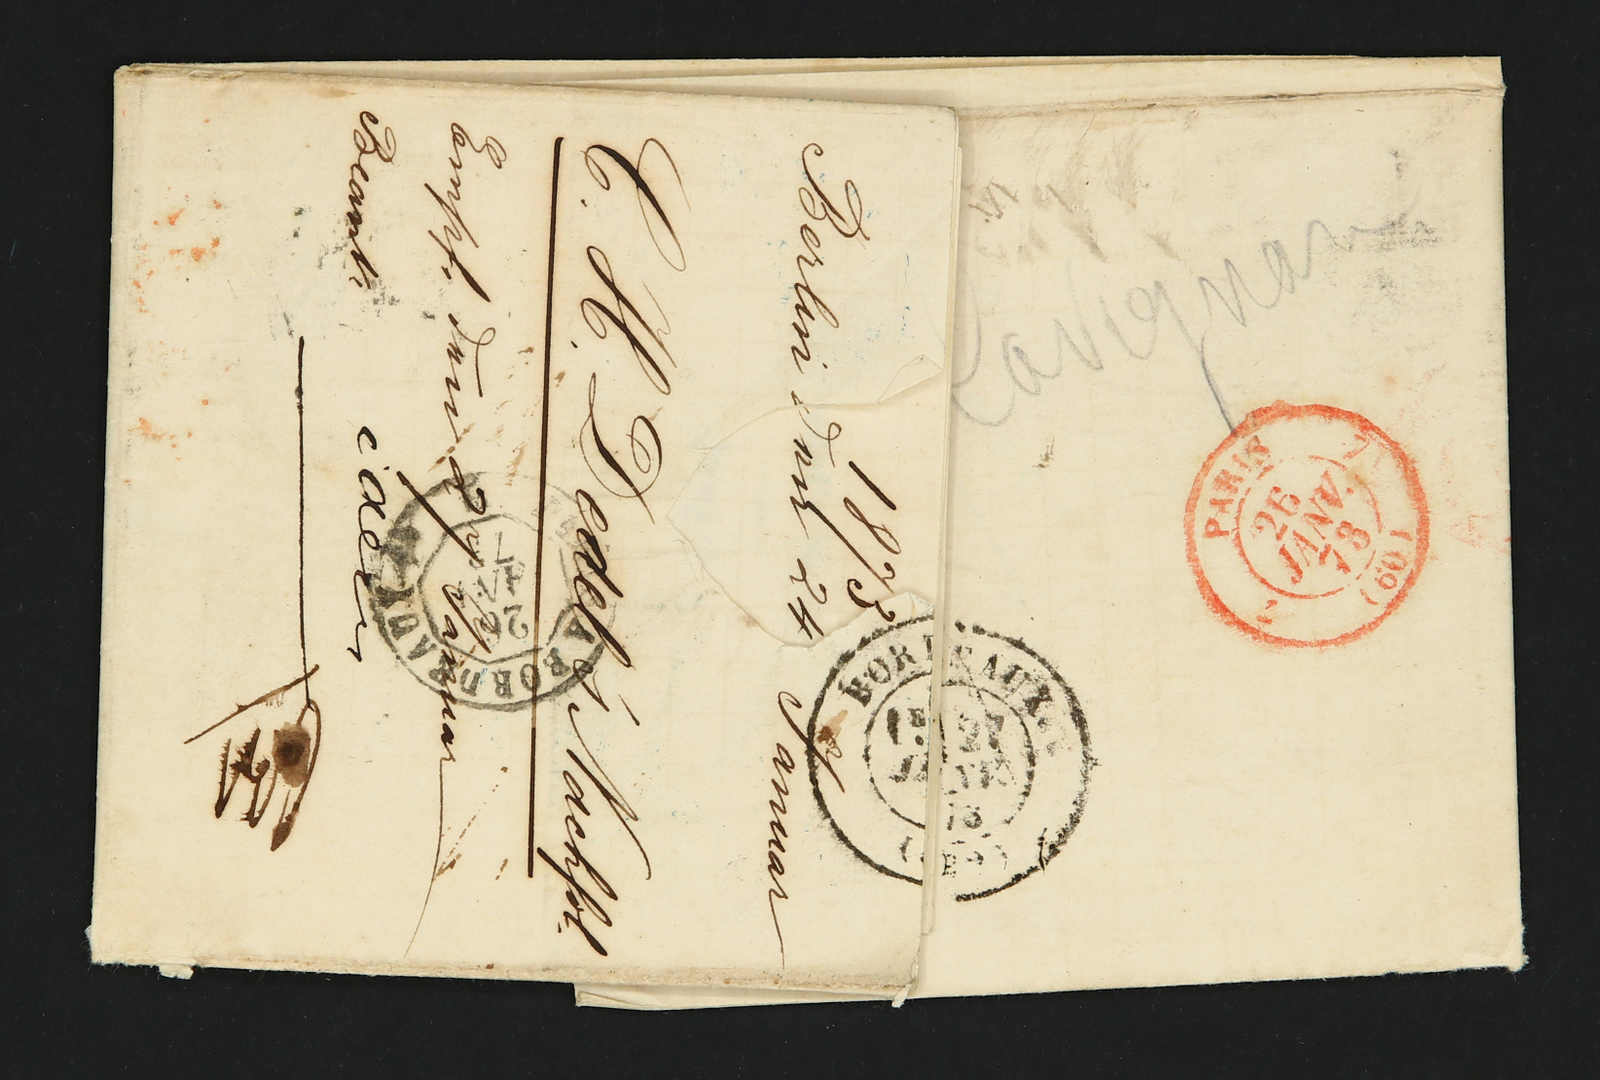 1873
Berlin d. 24 Januar
C. H. Dodel's Nachfl.
Empf. 27 Januar
Beantw.
idem
Lavignan
PARIS
26
JANV.
73
(60)
BORDEAUX
1E 27
JANV.
73
A BORDEAUX
26
JANV.